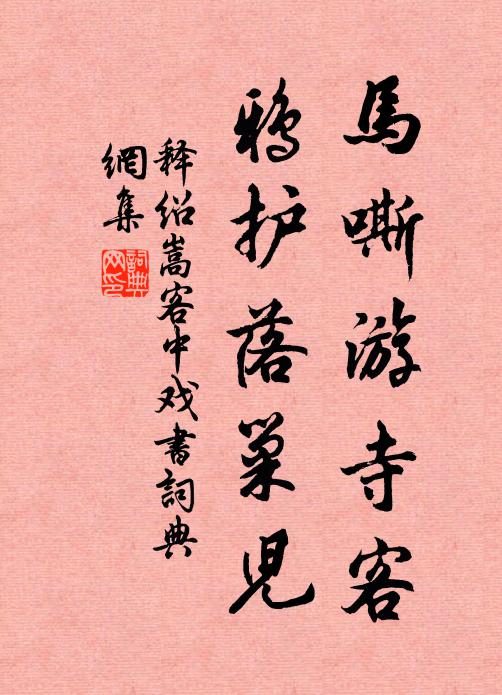 馬嘶游寺客
鸦护落巢兒
释绍嵩客中戏書詞典
網集
詞典
网印